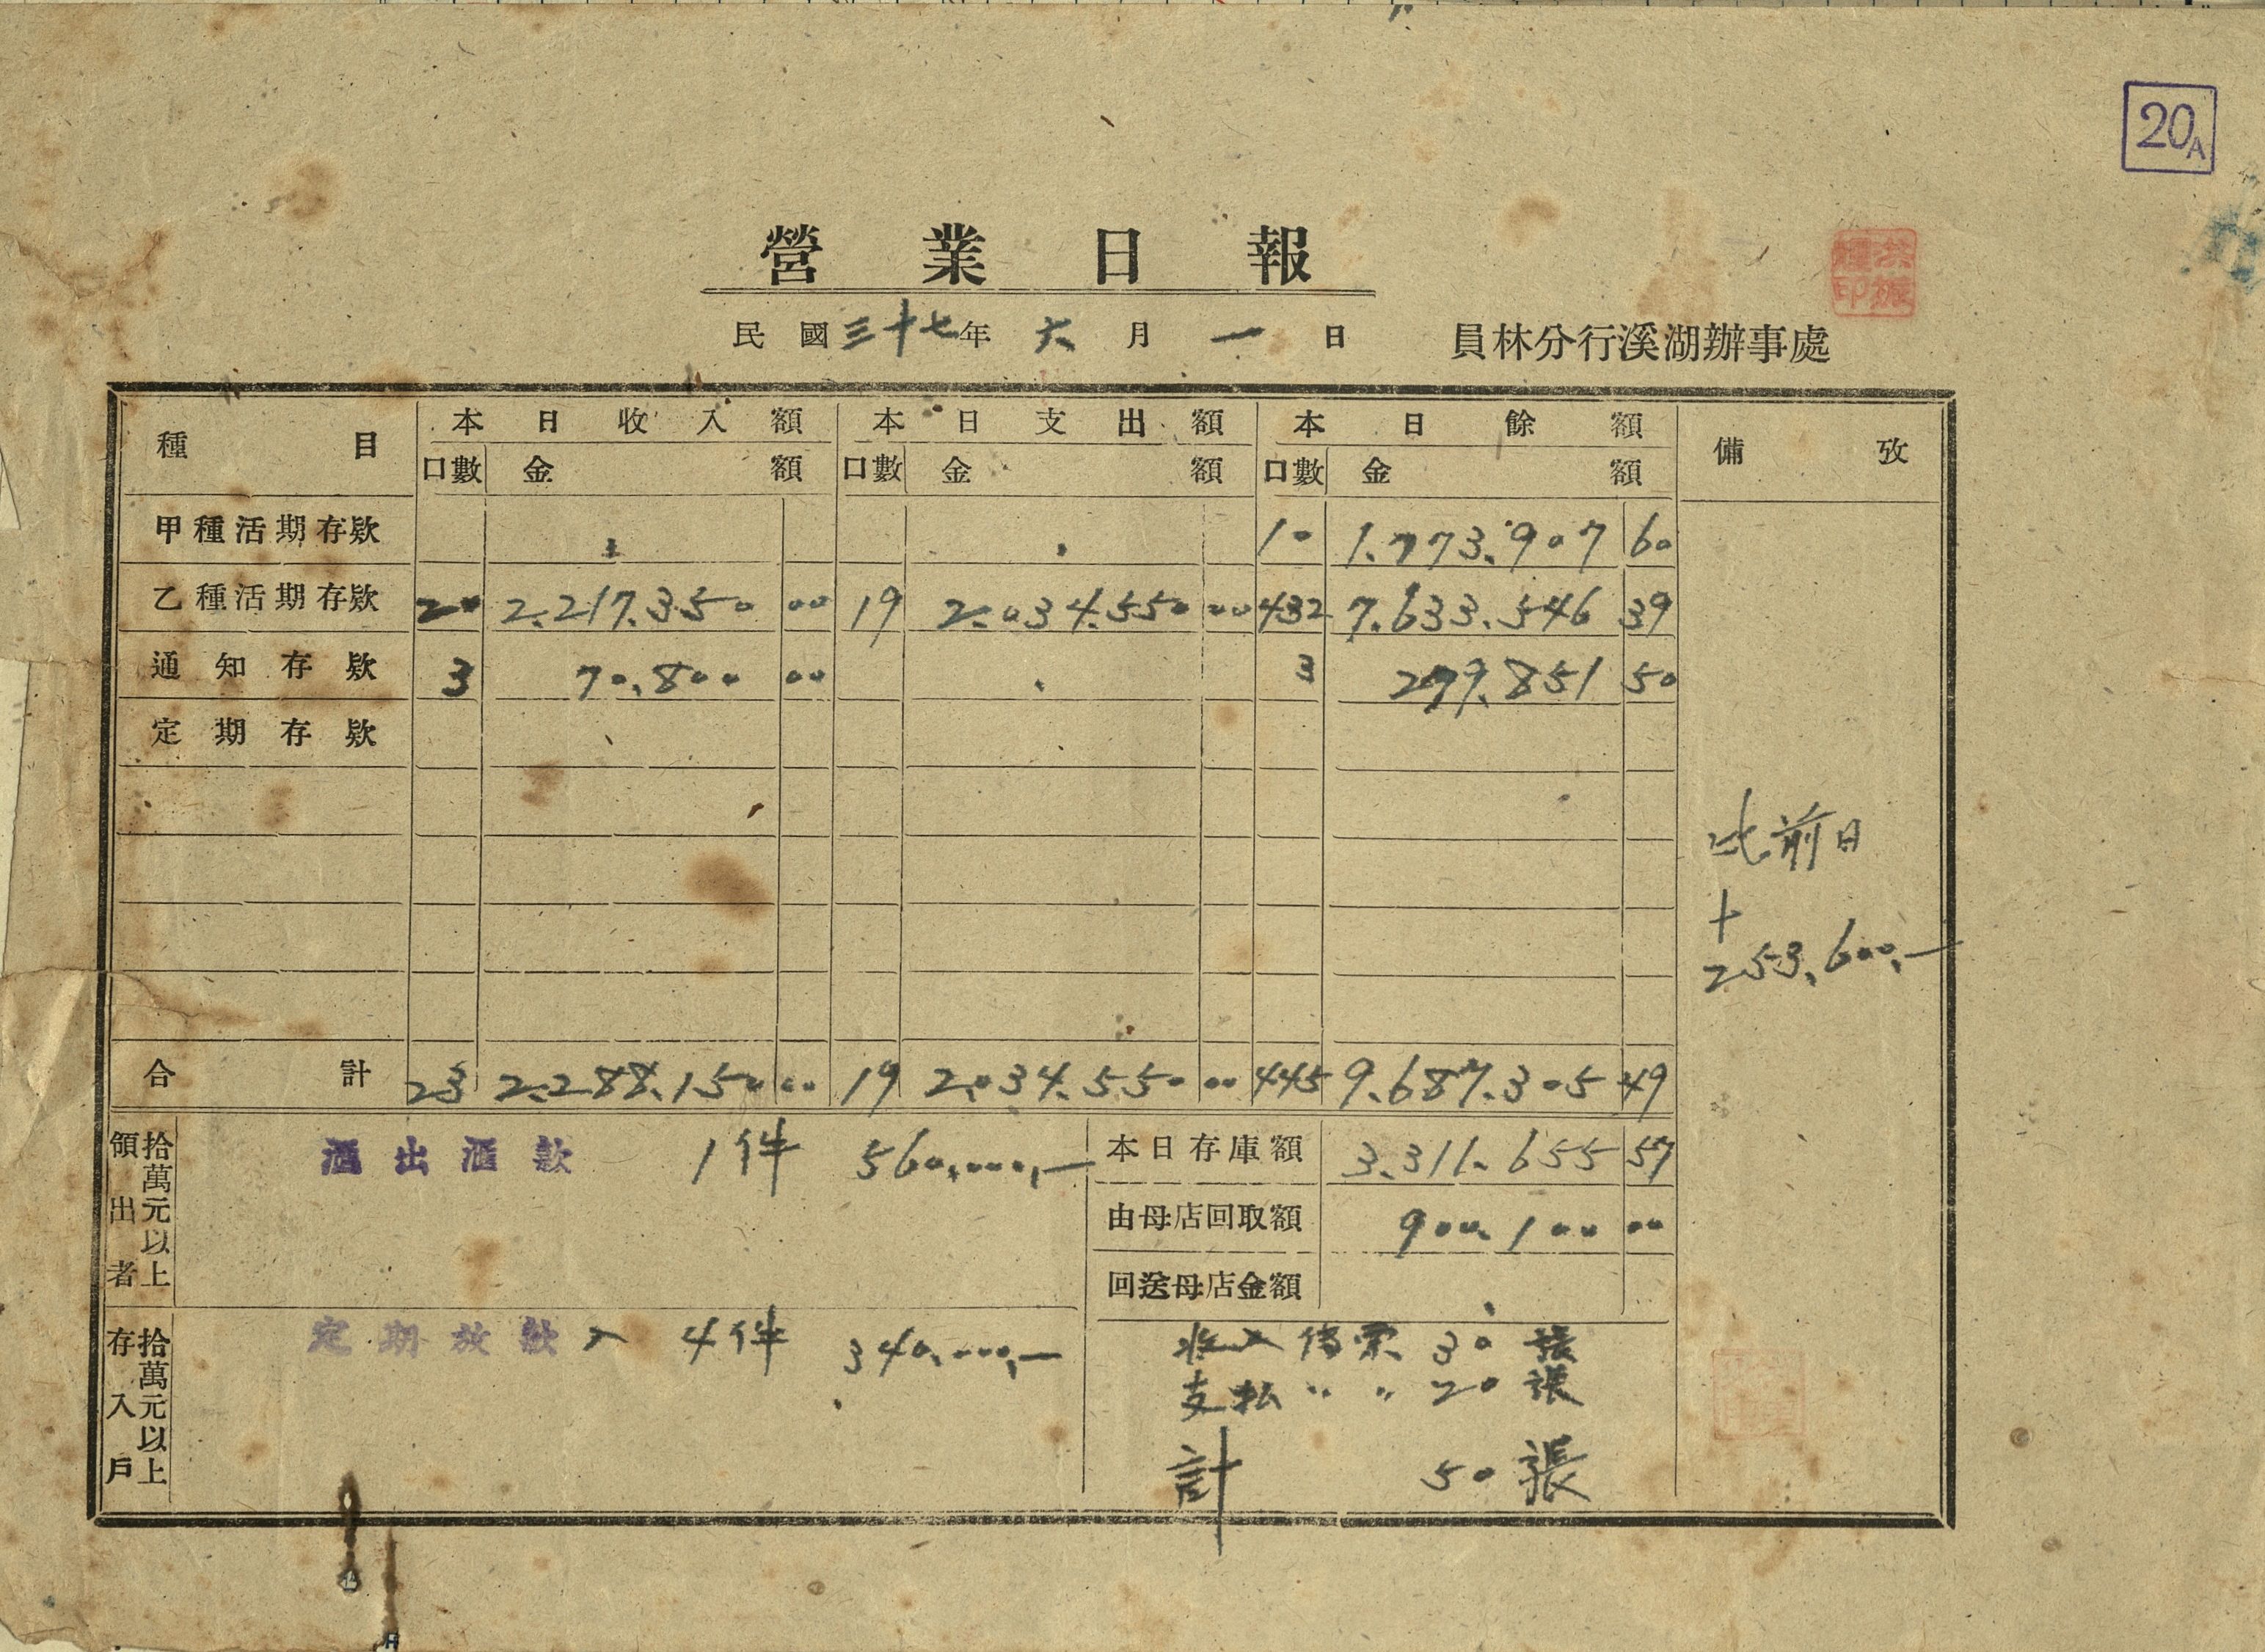 20A
營業日報
民國三十七年六月一日 員林分行溪湖辦事處
種目 本日收入額 本日支出額 本日餘額 備攷
口數 金額 口數 金額 口數 金額
甲種活期存欵 10 1.773.907 60
乙種活期存欵 20 2.217.350 00 19 2.034.550 00 432 7.633.546 39
通知存欵 3 70.800 00 3 279.851 50
定期存欵
比前日
+
253.600.—
合計 23 2.288.150 00 19 2.034.550 00 445 9.687.305 49
拾萬元以上領出者 滙出滙款 1件 560.000.—
本日存庫額 3.311.655 57
由母店回取額 900.100 00
回送母店金額
拾萬元以上存入戶 定期放款入 4件 340.000.—
收入傳票 30張
支払 〃 〃 20張
計 50張